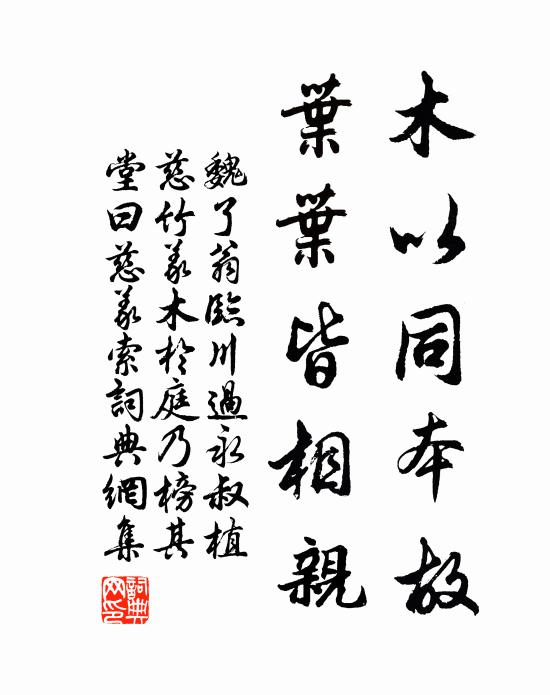 木以同本故
葉葉皆相親
魏了翁臨川過永叔植
慈竹義木於庭乃榜其
堂曰慈義索詞典網集
詞典网印